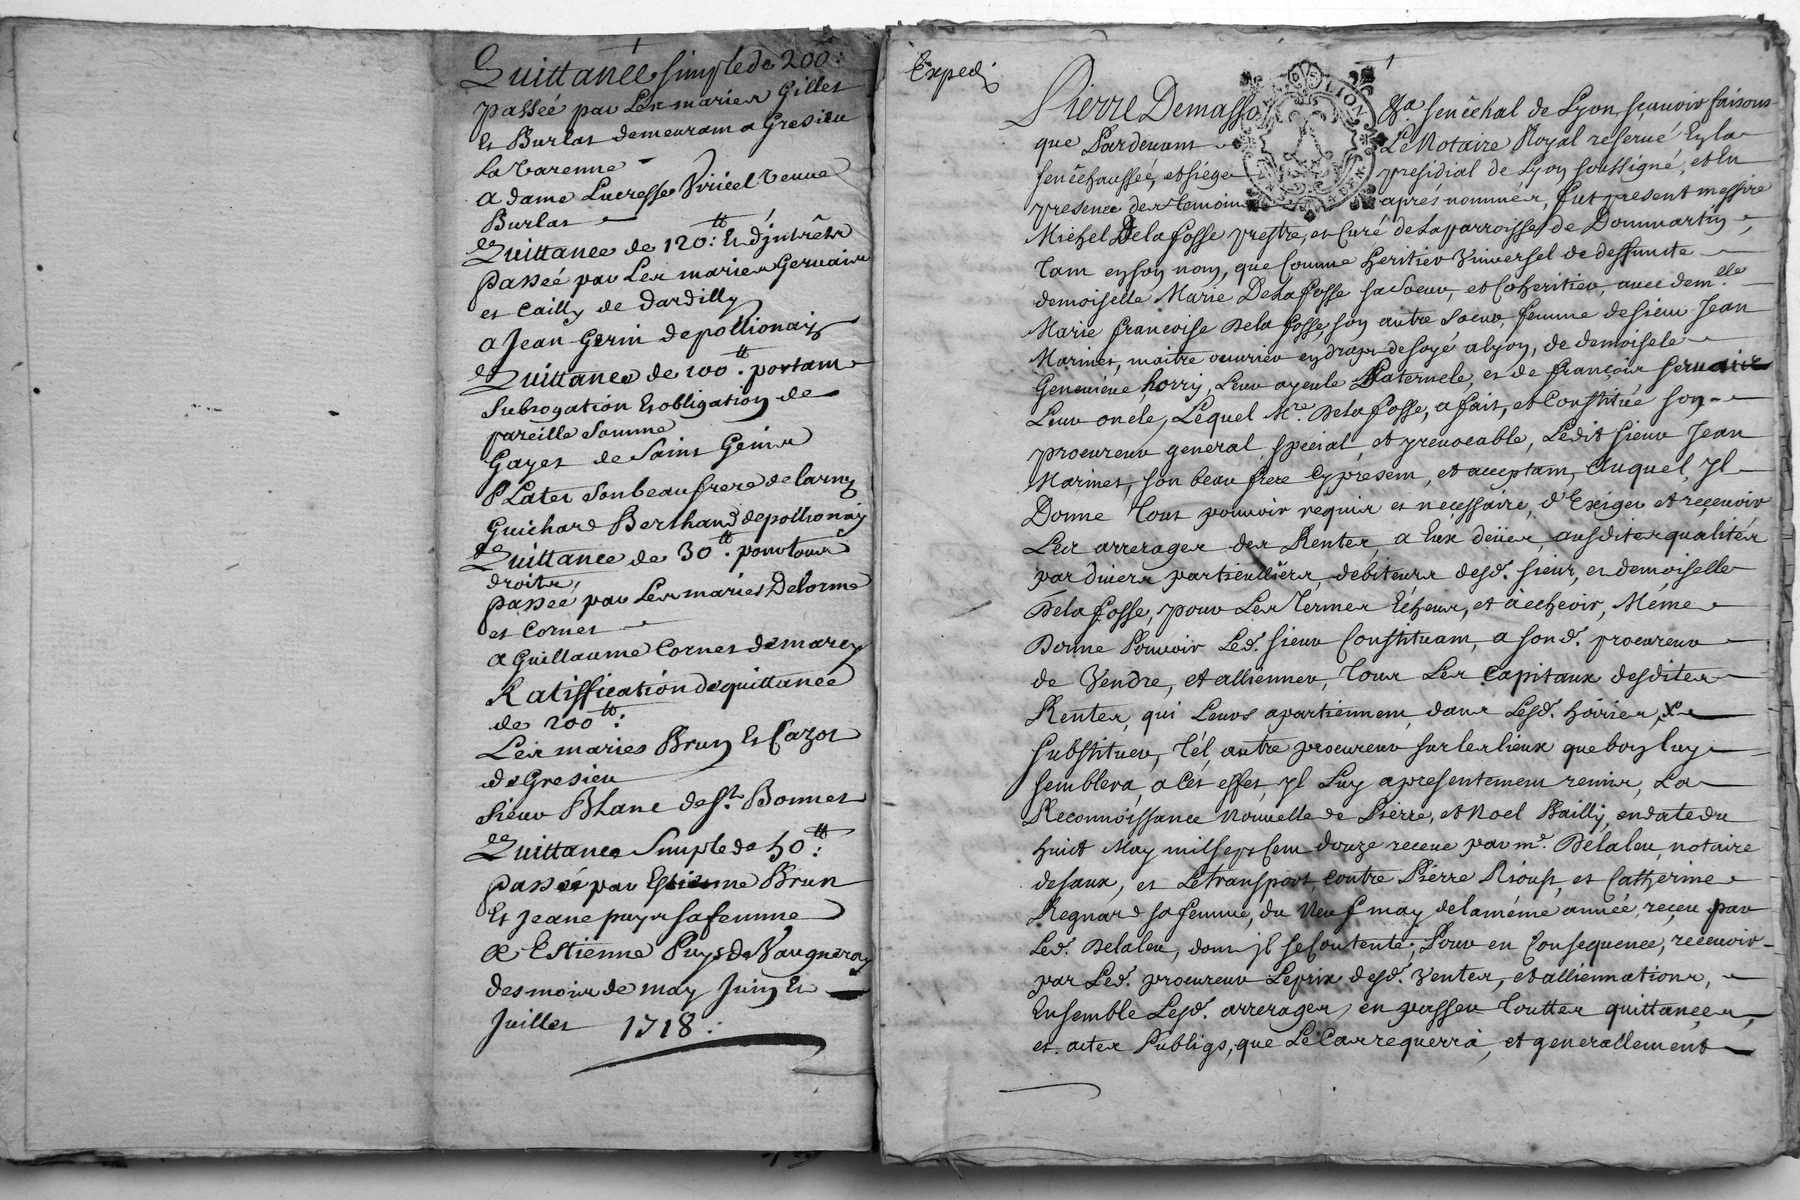 Quittance simple de 200:
passée par Les mariés Gillet
Et Burlat demeurant a Gresieu
La Varenne
a dame Lucresse Viricel veuve
Burlat
Quittance de 120 tt: Et d'jntrêts
passée par Les mariés Gervais
et Cailly de dardilly
a Jean Gerin de pollionay
Quittance de 100 tt. portant
Subrogation Et obligation de
pareille Somme
Gayet de Saint Genis
P Latet Son beau frere de larny
Guichard Berthaud de pollionay
Quittance de 30 tt. pour tous
droits,
passée par Les mariés Delorme
et Cornet
a Guillaume Cornet de marcy
Ratiffication de quittance
de 200 tt:
Les mariés Brun Et Cazot
de Gresieu
Sieur Blanc de St. Bonnet
Quittance Simple de 50 tt:
passée par Estienne Brun
Et Jeane puys sa femme
a Estienne Puys de Vaugneray
des mois de may Juin Et
Juillet 1718:
Exped.
Pierre Demasso senêchal de Lyon sçauoir faisons
que Pardeuant Le Notaire Royal reserué En la
senêchaussée, et siége presidial de Lyon soussigné, et En
presence des temoins aprés nommés, fut present messire
Michel Delafosse prestre, et Curé de La parroisse de Dommartin,
Tant en son nom, que comme heritier Vniversel de deffuncte
demoiselle Marie Delafosse sa soeur, et Coheritier, auec demlle.
Marie françoise Dela fosse, son autre soeur, femme de sieur Jean
Marinet, maitre ouurier en draps de soye a lyon, de demoisele
Geneuieue horry, Leur ayeule Paternele, et de françois seruaire
Leur oncle, Lequel Mre. Delafosse, a fait, et Constitué son
procureur general, special, et yreuocable, Ledit sieur Jean
Marinet, son beau frere Cy present, et acceptant, Auquel, yl
Donne tout pouvoir requis et necessaire, d'Exiger et receuoir
Les arrerages des Rentes, a Eux deües, ausdites qualités
par diuers particulliers, debiteurs desd. sieur, et demoiselle
Dela fosse, pour Les termes Echeus, et à echeoir, Méme
Donne Pouvoir Led. sieur Constituant, a sond. procureur
de Vendre, et allienner, tous Les Capitaux desdites
Rentes, qui Leurs apartiennent, dans Lesd. hoiries,
substituer, tél autre procureur sur les lieux que bon luy
semblera, a Cét effet, yl Luy a presentement remis, La
Reconnoissance Nouvelle de Pierre, et Noel Bailly, en date du
huict May mil sept Cent douze receue par me. Delaleu, notaire
desaux, et Le transport, contre Pierre Rioust, et Catherine
Regnard sa femme, du Neuf may de la méme année, reçeu par
Led. Delaleu, dont jl se Contente; Pour en Consequence, receuoir
par Led. procureur Le prix desd. Ventes, et alliennations,
Ensemble Lesd. arrerages, en passer Touttes quittances,
et actes Publiqs, que Le Cas requerra, et generallement